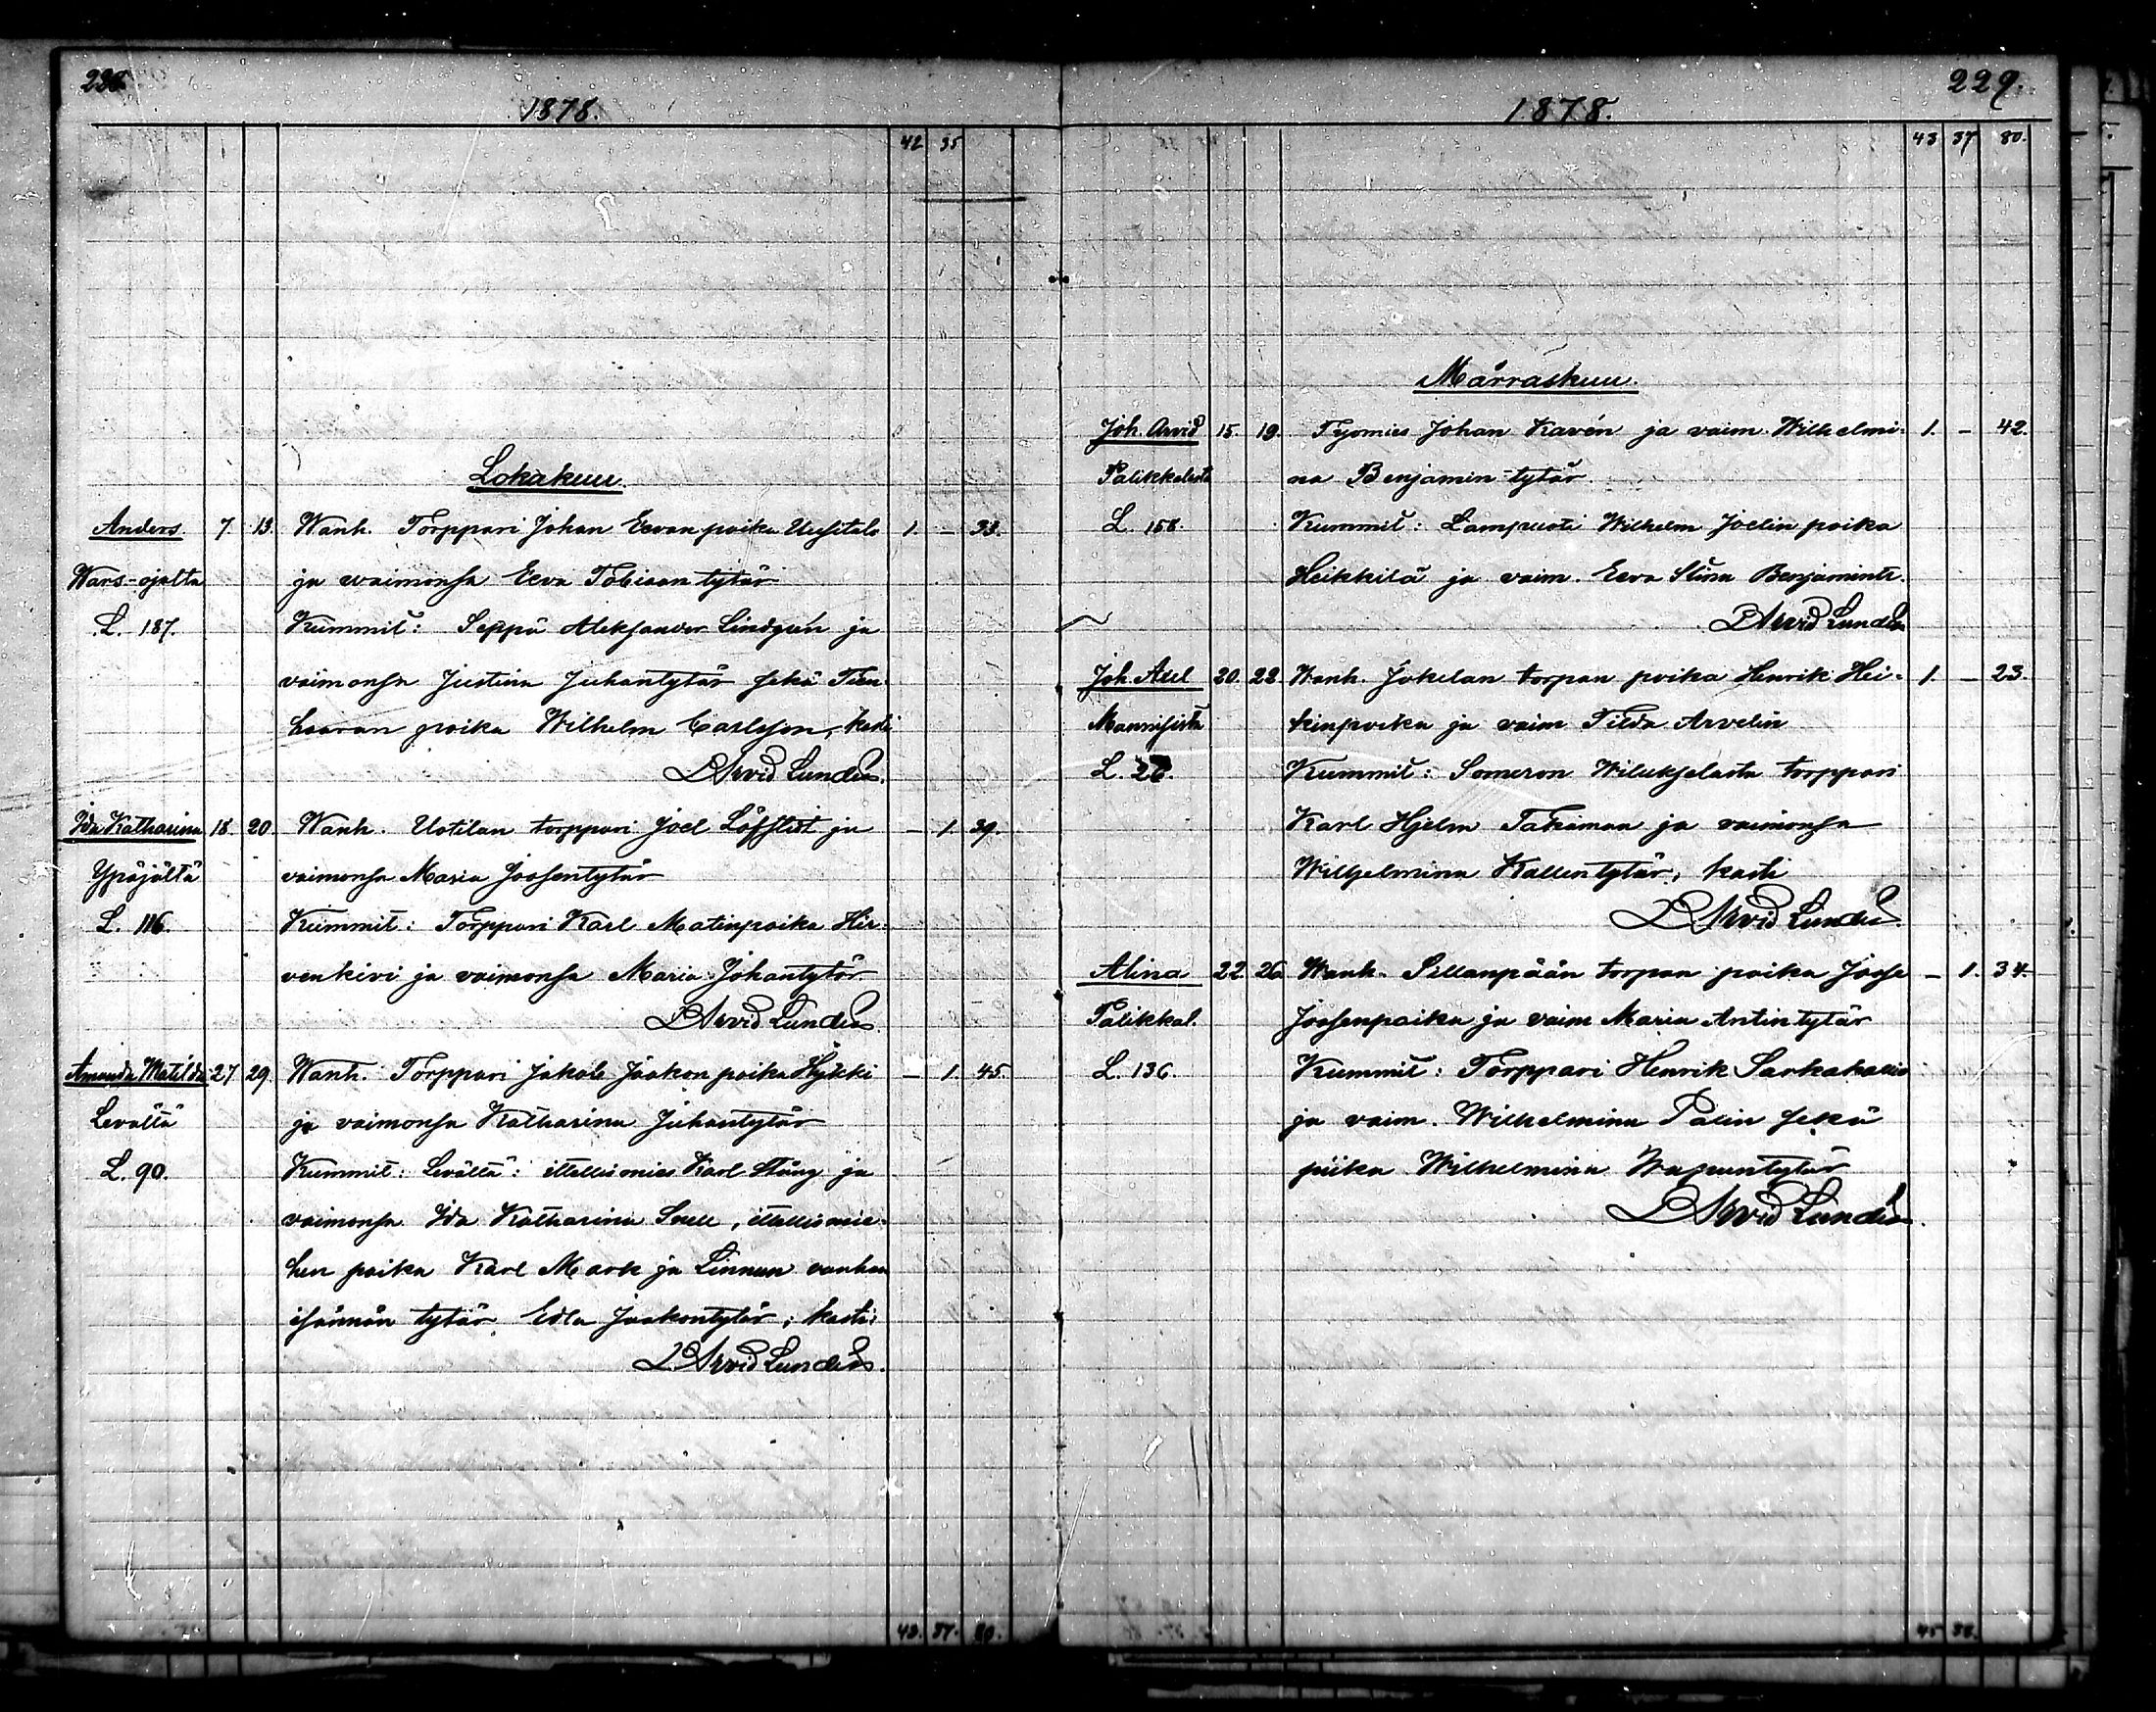 228
1878.
42 35
Lokakuu.
Anders. 7. 13. Wanh. Torppari Johan Eevan poika Uusitalo 1. - 33.
Wars-ojalta ja vaimonsa Eeva Tobiaan tytär
L. 187. Kummit: Seppä Aleksander Lindgren ja
vaimonsa Justina Juhantytär sekä Tien-
haaran poika Wilhelm Carlsson, kasti
Arvid Lundén.
Ida Katharina 18. 20. Wanh. Uotilan torppari Joel Löfstet ja - 1. 39.
Ypäjältä vaimonsa Maria Joosentytär
L. 116. Kummit: Torppari Karl Matinpoika Hir-
venkivi ja vaimonsa Maria Johantytär
Arvid Lundén.
Amanda Matilda 27 29. Wanh. Torppari Jakob Jaakon poika Hykki - 1. 45.
Levältä ja vaimonsa Katharina Juhantytär
L. 90. Kummit: Levältä: itellismies Karl Stång ja
vaimonsa Ida Katharina , itellismie-
hen poika Karl Mark ja Linnun vanhan
isännän tytär Edla Jaakontytär; kasti:
Arvid Lundén.
43. 37. 80.
229.
1878.
43 37 80.
Marraskuu.
Joh. Arvid 15. 19. Tyomies Johan Kavén ja vaim. Wilhelmi- 1. - 42.
Palikkalasta na Benjamin-tytär
L. 158. Kummit: Lampuoti Wilhelm Joelin poika
Heikkilä ja vaim. Eeva Stina Benjamintr.
Arvid Lundén
Joh. Axel 20. 22. Wanh. Jokelan torpan poika Henrik Hei- 1. - 23.
Mannisista kinpoika ja vaim Tilda Arvelin
L. 26. Kummit: Someron Wiluksela torppari
Karl Hjelm Takamaa ja vaimonsa
Wilhelmina Kallentytär, kasti
Arvid Lundén.
Alina 22. 26 Wanh. Sillanpään torpan poika Joose - 1. 34.
Palikkal. Joosenpoika ja vaim Maria Antintytär
L. 136. Kummit: Torppari Henrik Sarkaharju
ja vaim. Wilhelmina Palin sekä
piika Wilhelmina Wapuntytär
Arvid Lundén.
45 38.